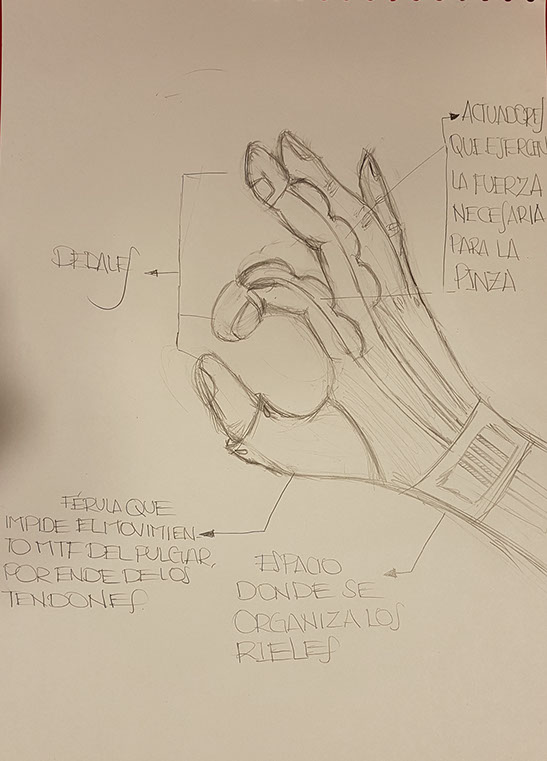 ACTUADORES
QUE EJERCEN
LA FUERZA
NECESARIA
PARA LA
PINZA
DEDALES
FÉRULA QUE
IMPIDE EL MOVIMIEN
TO MTF DEL PULGAR,
POR ENDE DE LOS
TENDONES.
ESPACIO
DONDE SE
ORGANIZA LOS
RIELES